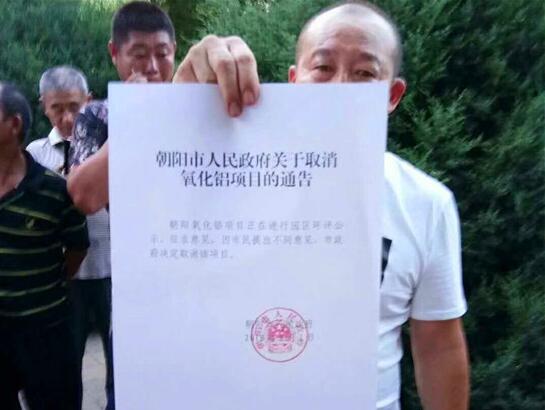 朝阳市人民政府关于取消
氧化铝项目的通告
朝阳氧化铝项目正在进行园区环评公
示，征求意见，因市民提出不同意见，市政
府决定取消该项目。